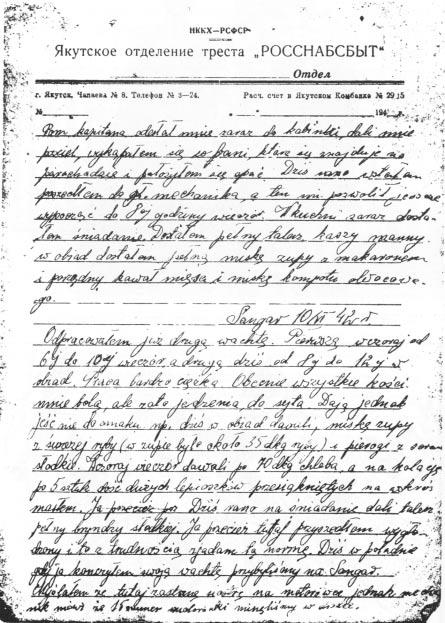 НККХ—РСФСР
Якутское отделение треста „РОССНАБСБЫТ“
Отдел
г. Якутск, Чапаева № 8. Телефон № 3—24.
Расч. счет в Якутском Комбанке № 29|15
№ 194 г.
Pom kapitana odesłał mnie zaraz do kabinki, dali mnie
wykąpałem się w wanni, która się znajduje na
parochodzie i położyłem się spać. Dziś rano wstałem
poszedłem do gł. mechanika, a ten mi pozwolił jeszcze
wypocząć do 8ej godziny wieczór. W kuchni zaraz dosta-
łem śniadanie. Dostałem pełny talerz kaszy manny
w obiad dostałem pełną miskę zupy z makaronem
i porządny kawał mięsa i miskę kompotu owocowe-
go.
Sangar 10/VI 42 r
Odpracowałem już drugą wachtę. Pierwszą wczoraj od
6ej do 10ej wieczór, a drugą dziś od 8ej do 12ej w
obiad. Praca bardzo ciężka. Obecnie wszystkie kości
mnie bolą, ale zato jedzenia do syta. Dają jednak
jeść nie do smaku np. dziś w obiad dawali, miskę zupy
z świeżej ryby (w zupie było około 35 dkg ryby) i pierogi z
słodkie. Wczoraj wieczór dawali po 70 dkg chleba, a na kolację
po 5 sztuk dość dużych lepioszków przesiąkniętych na wskroś
masłem. Ja przecież po Dziś rano na śniadanie dali talerz
pełny bryndzy słodkiej. Ja przecież tutaj przyszedłem wygło-
dzony i to z trudnością zjadam tą normę. Dziś w południe
gdy ja kończyłem swoją wachtę przybyliśmy na Sangar.
Myślałem że tutaj zastanę na motorówce jednak mecha-
nik mówi że minęliśmy w